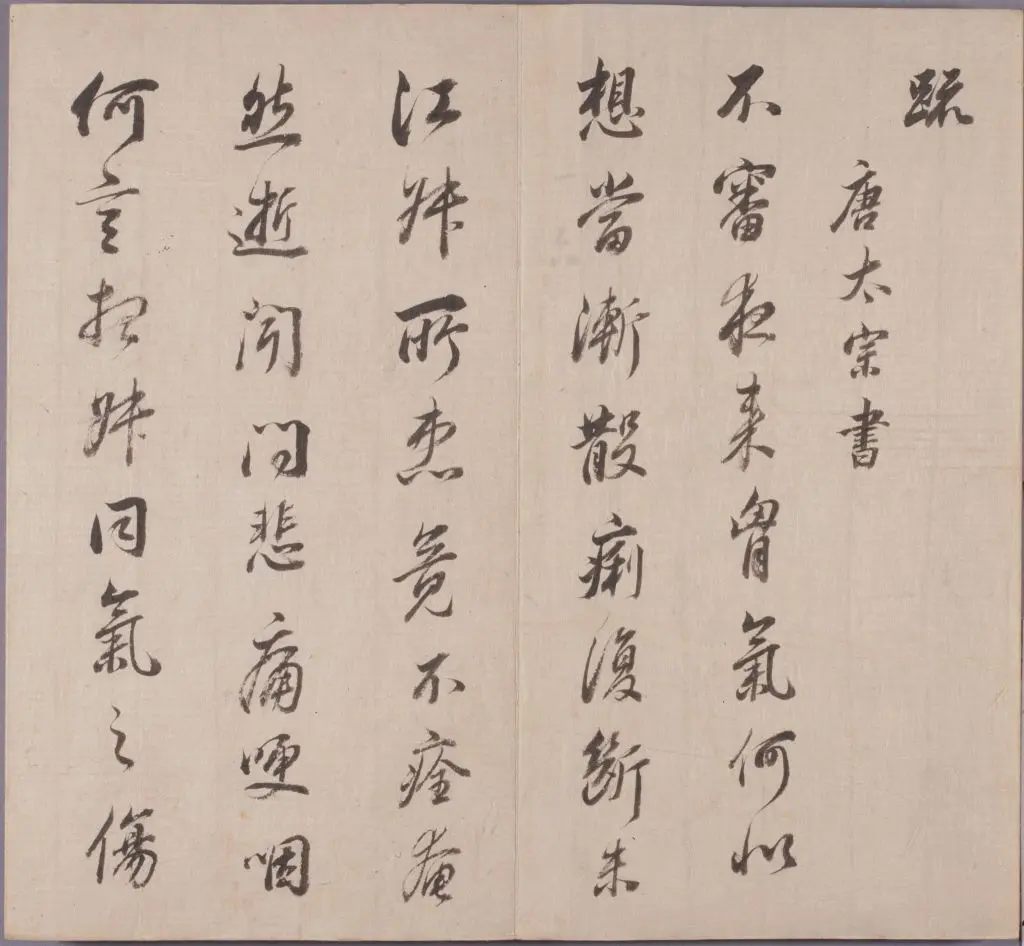 疏
唐太宗書
不審夜来胷氣何似
想當漸散痢復斷未
江妹所患竟不痊奄
然逝聞問悲痛哽咽
何言抱妹同氣之傷